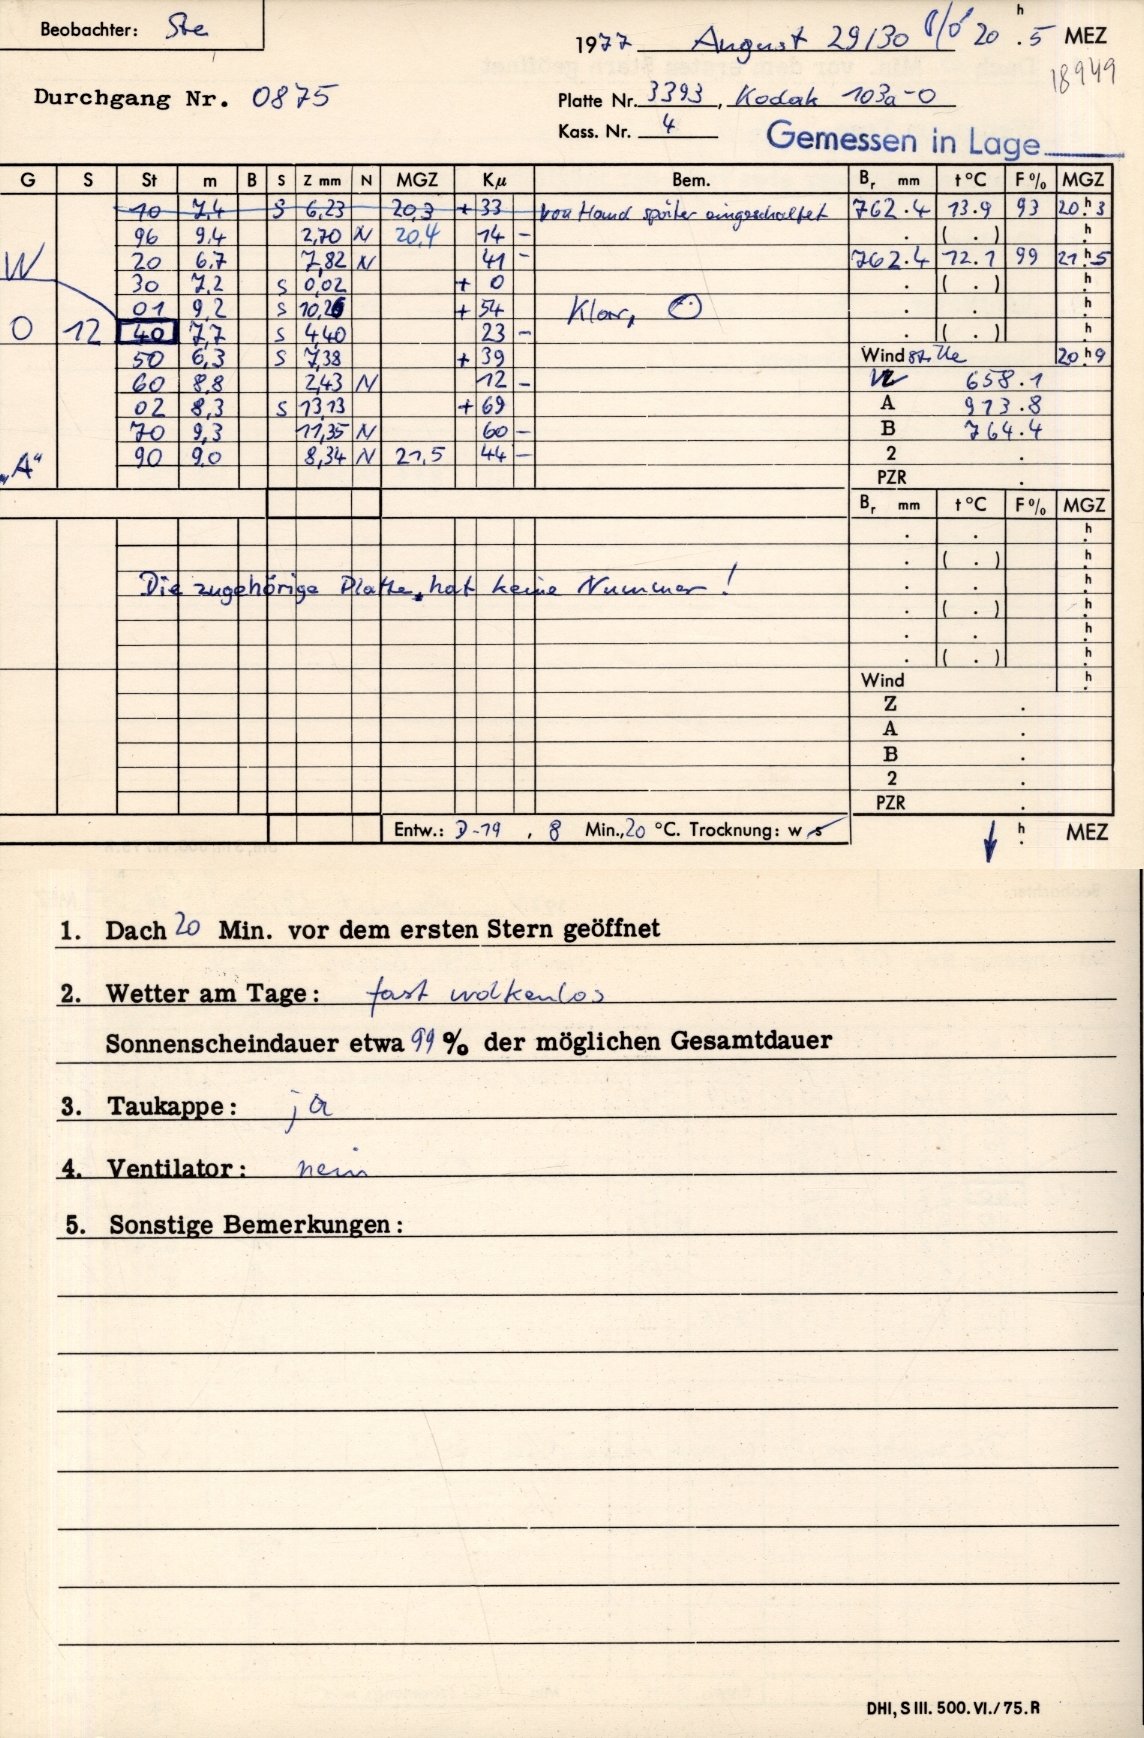 Beobachter: Ste
1977 August 29/30 20 h . 5 MEZ
18949
Durchgang Nr. 0875
Platte Nr. 3393, Kodak 103a-O
Kass. Nr. 4
Gemessen in Lage
G S St m B S Z mm N MGZ Kμ Bem. Br mm t °C F % MGZ
10 7,4 S 6,23 20,3 + 33 von Hand später eingeschaltet 762.4 13.9 93 20.h 3
96 9,4 2,70 N 20,4 14 - . ( . ) h
W 20 6,7 7,82 N 41 - 762.4 12.1 99 21.h 5
30 7,2 S 0,02 + 0 . ( . ) h
01 9,2 S 10,26 + 54 Klar, . . h
O 12 40 7,7 S 4,40 23 - . ( . ) h
50 6,3 S 7,38 + 39 Wind stille 20 h 9
60 8,8 2,43 N 12 - 658.1
02 8,3 S 13,13 + 69 A 913.8
70 9,3 11,35 N 60 - B 764.4
„A“ 90 9,0 8,34 N 21,5 44 - 2 .
PZR .
Br mm t °C F % MGZ
. . h
. ( . ) h
Die zugehörige Platte, hat keine Nummer! . . h
. ( . ) h
. . h
. ( . ) h
Wind h
Z .
A .
B .
2 .
PZR .
Entw.: D-19 , 8 Min., 20 °C. Trocknung: w s h MEZ
1. Dach 20 Min. vor dem ersten Stern geöffnet
2. Wetter am Tage: fast wolkenlos
Sonnenscheindauer etwa 99 % der möglichen Gesamtdauer
3. Taukappe: ja
4. Ventilator: nein
5. Sonstige Bemerkungen:
DHI, S III. 500. VI. / 75. R